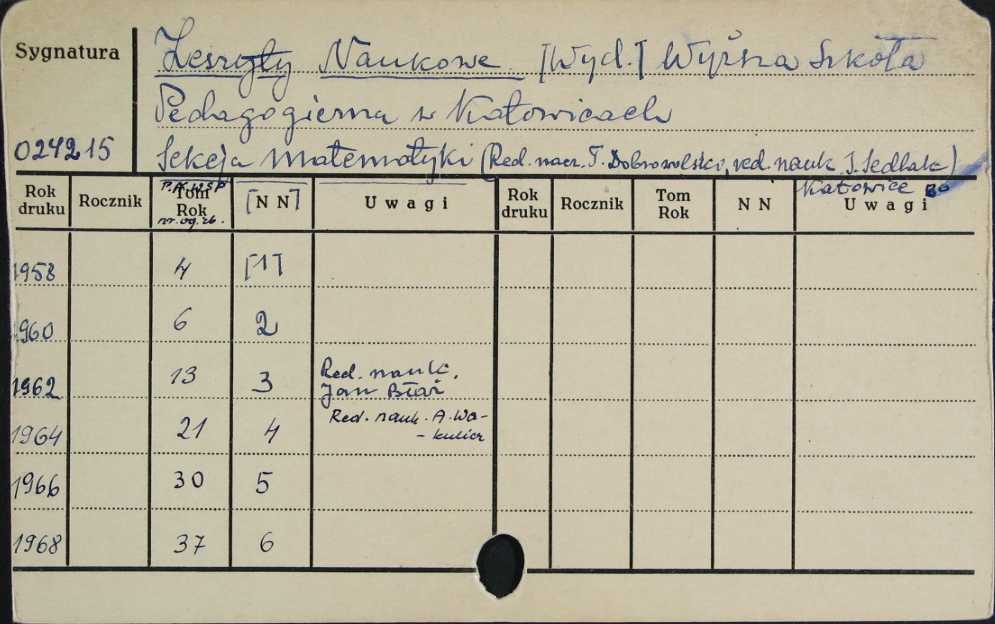 Sygnatura
Zeszyty Naukowe [Wyd.] Wyższa Szkoła
Pedagogiczna w Katowicach
024215
Sekcja Matematyki (Red. nacz. T. Dobrowolski, red. nauk J. Sedlak)
Katowice
Rok druku Rocznik Tom Rok [N N] Uwagi Rok druku Rocznik Tom Rok N N Uwagi
nr. og. zb.
1958 4 [1]
1960 6 2
1962 13 3 Red. nauk. Jan Błaż
1964 21 4 Red. nauk. A. Wa-
- kulicz
1966 30 5
1968 37 6